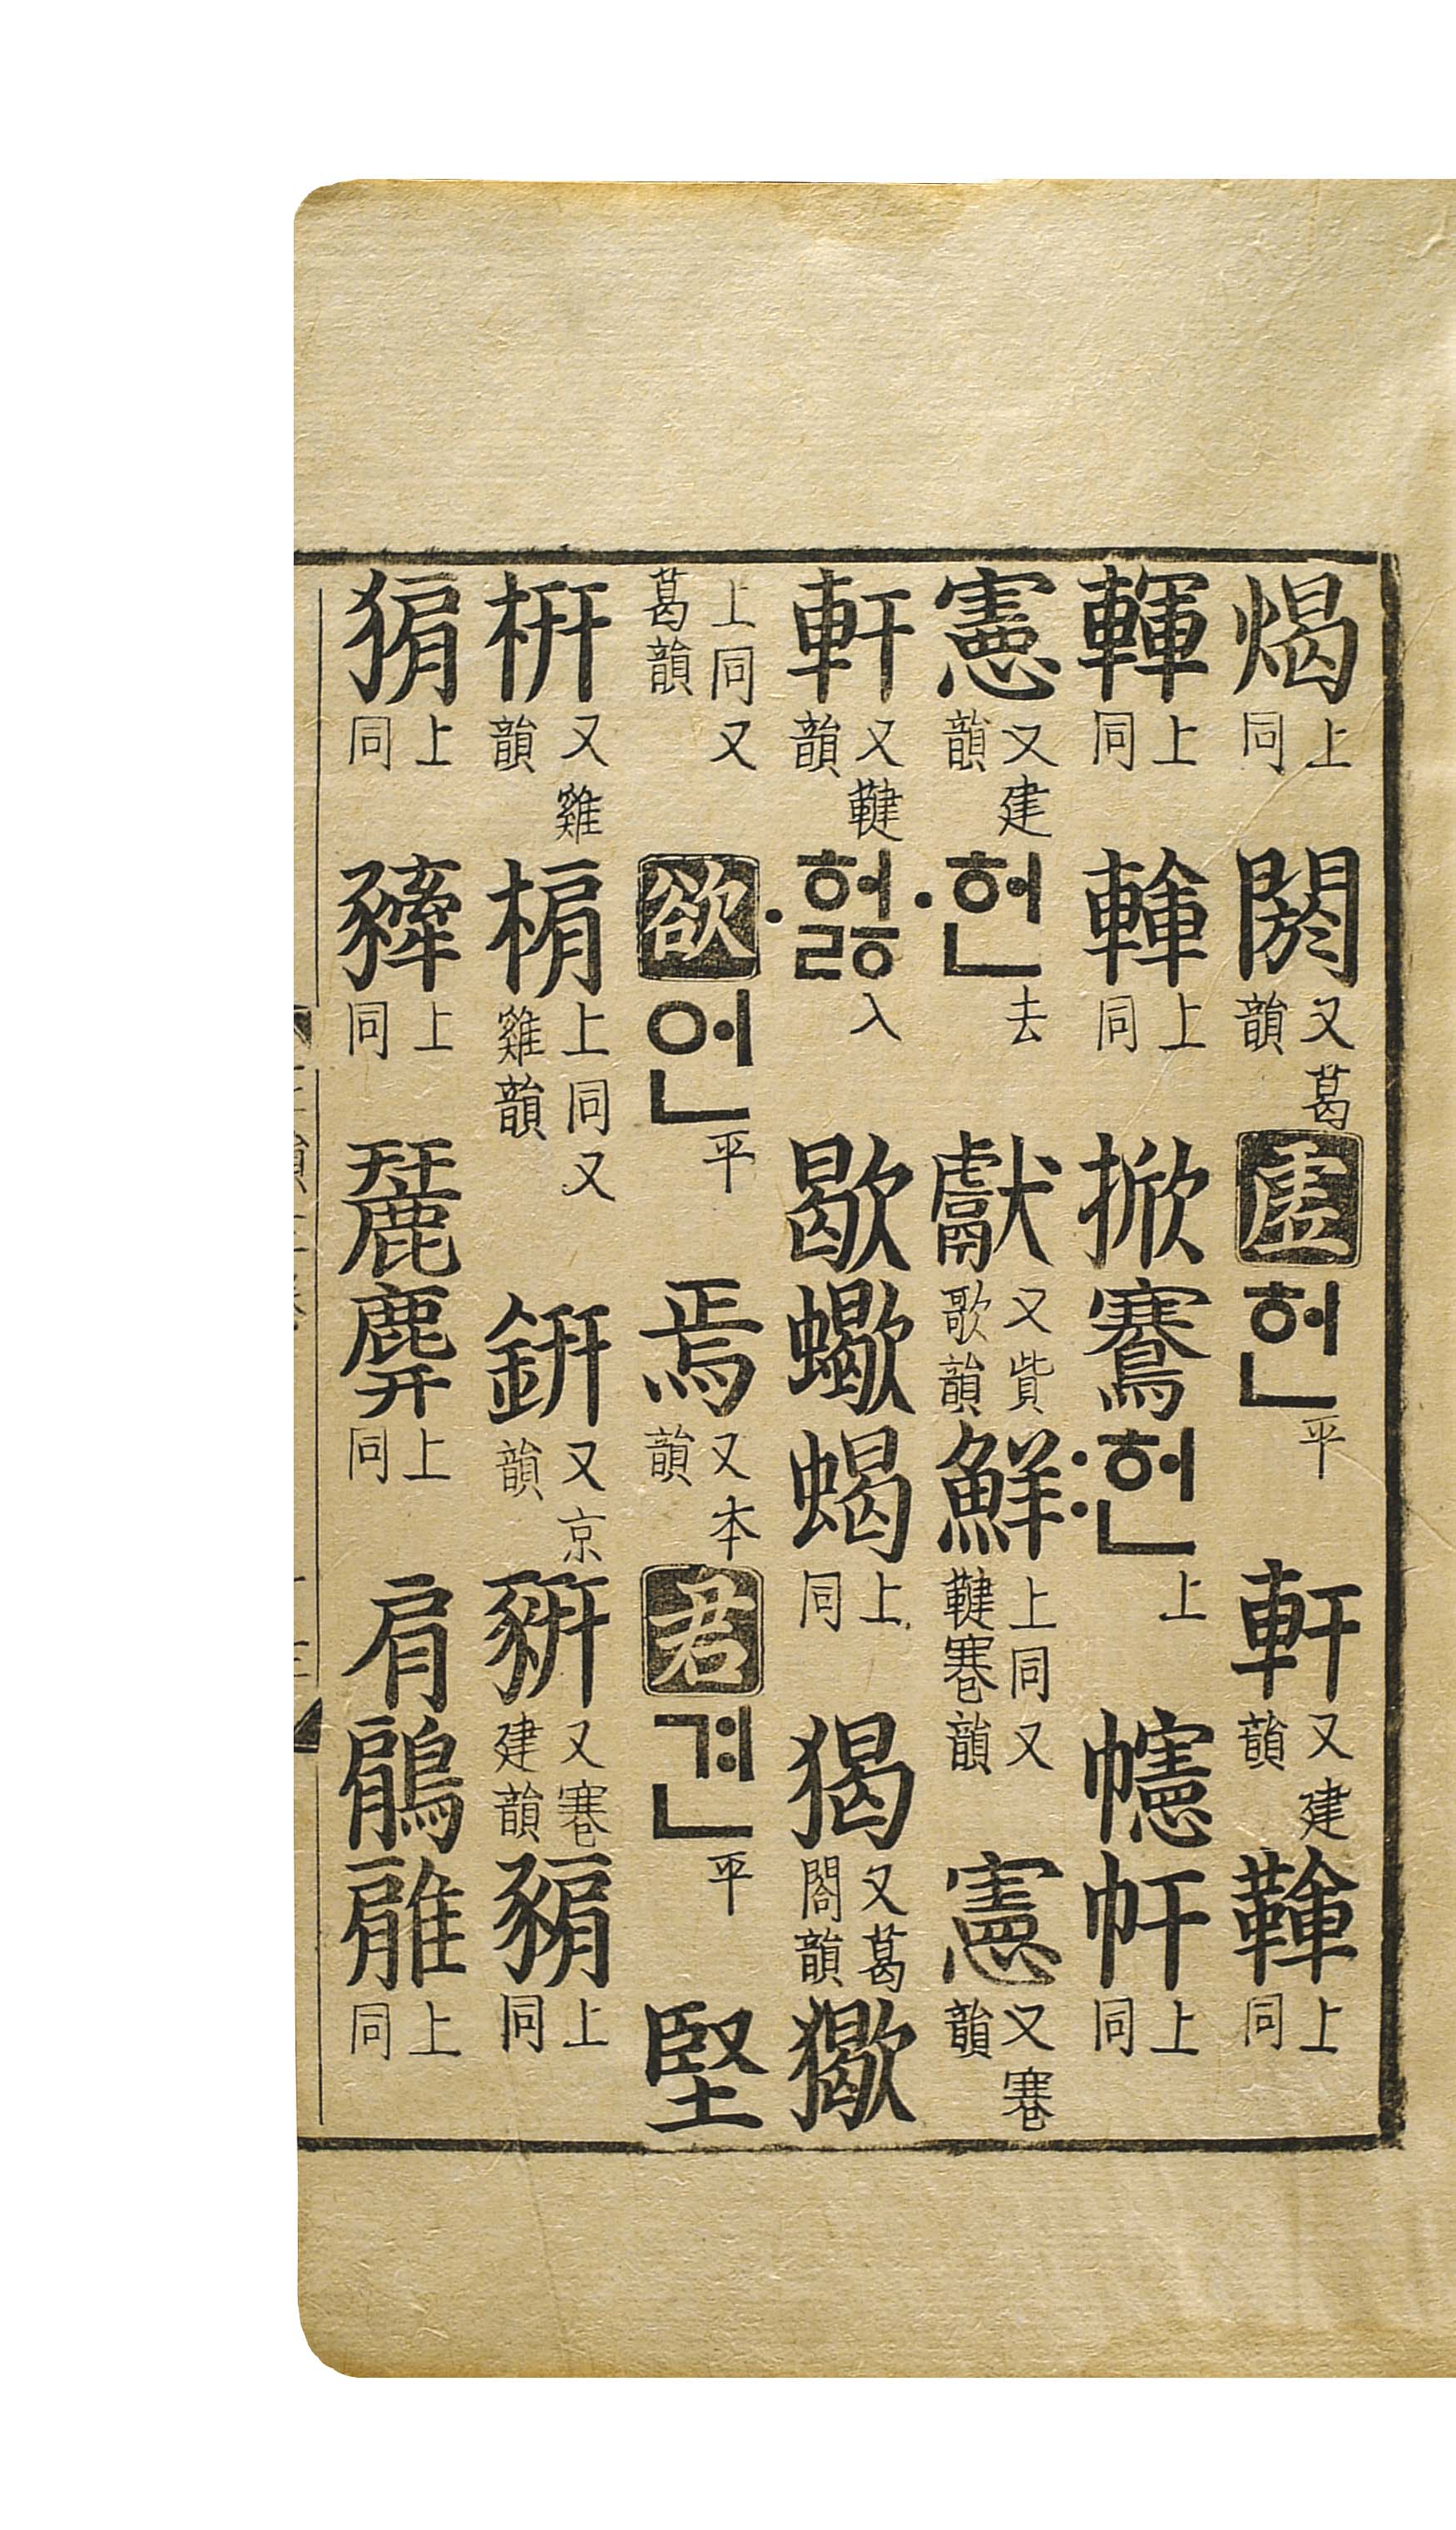 上同閼又葛韻虛헌平軒又建韻上同
上同上同掀鶱〯헌上幰上同
憲又建韻〮헌去獻又貲歌韻鮮上同又鞬寋韻憲又寋韻
軒又鞬韻〮헗入歇蠍蝎上同猲又葛閤韻
上同又葛韻欲언平焉又本韻君견平堅
枅又雞韻上同又雞韻鈃又京韻豣又寋建韻上同
猏上同上同上同肩鵳上同